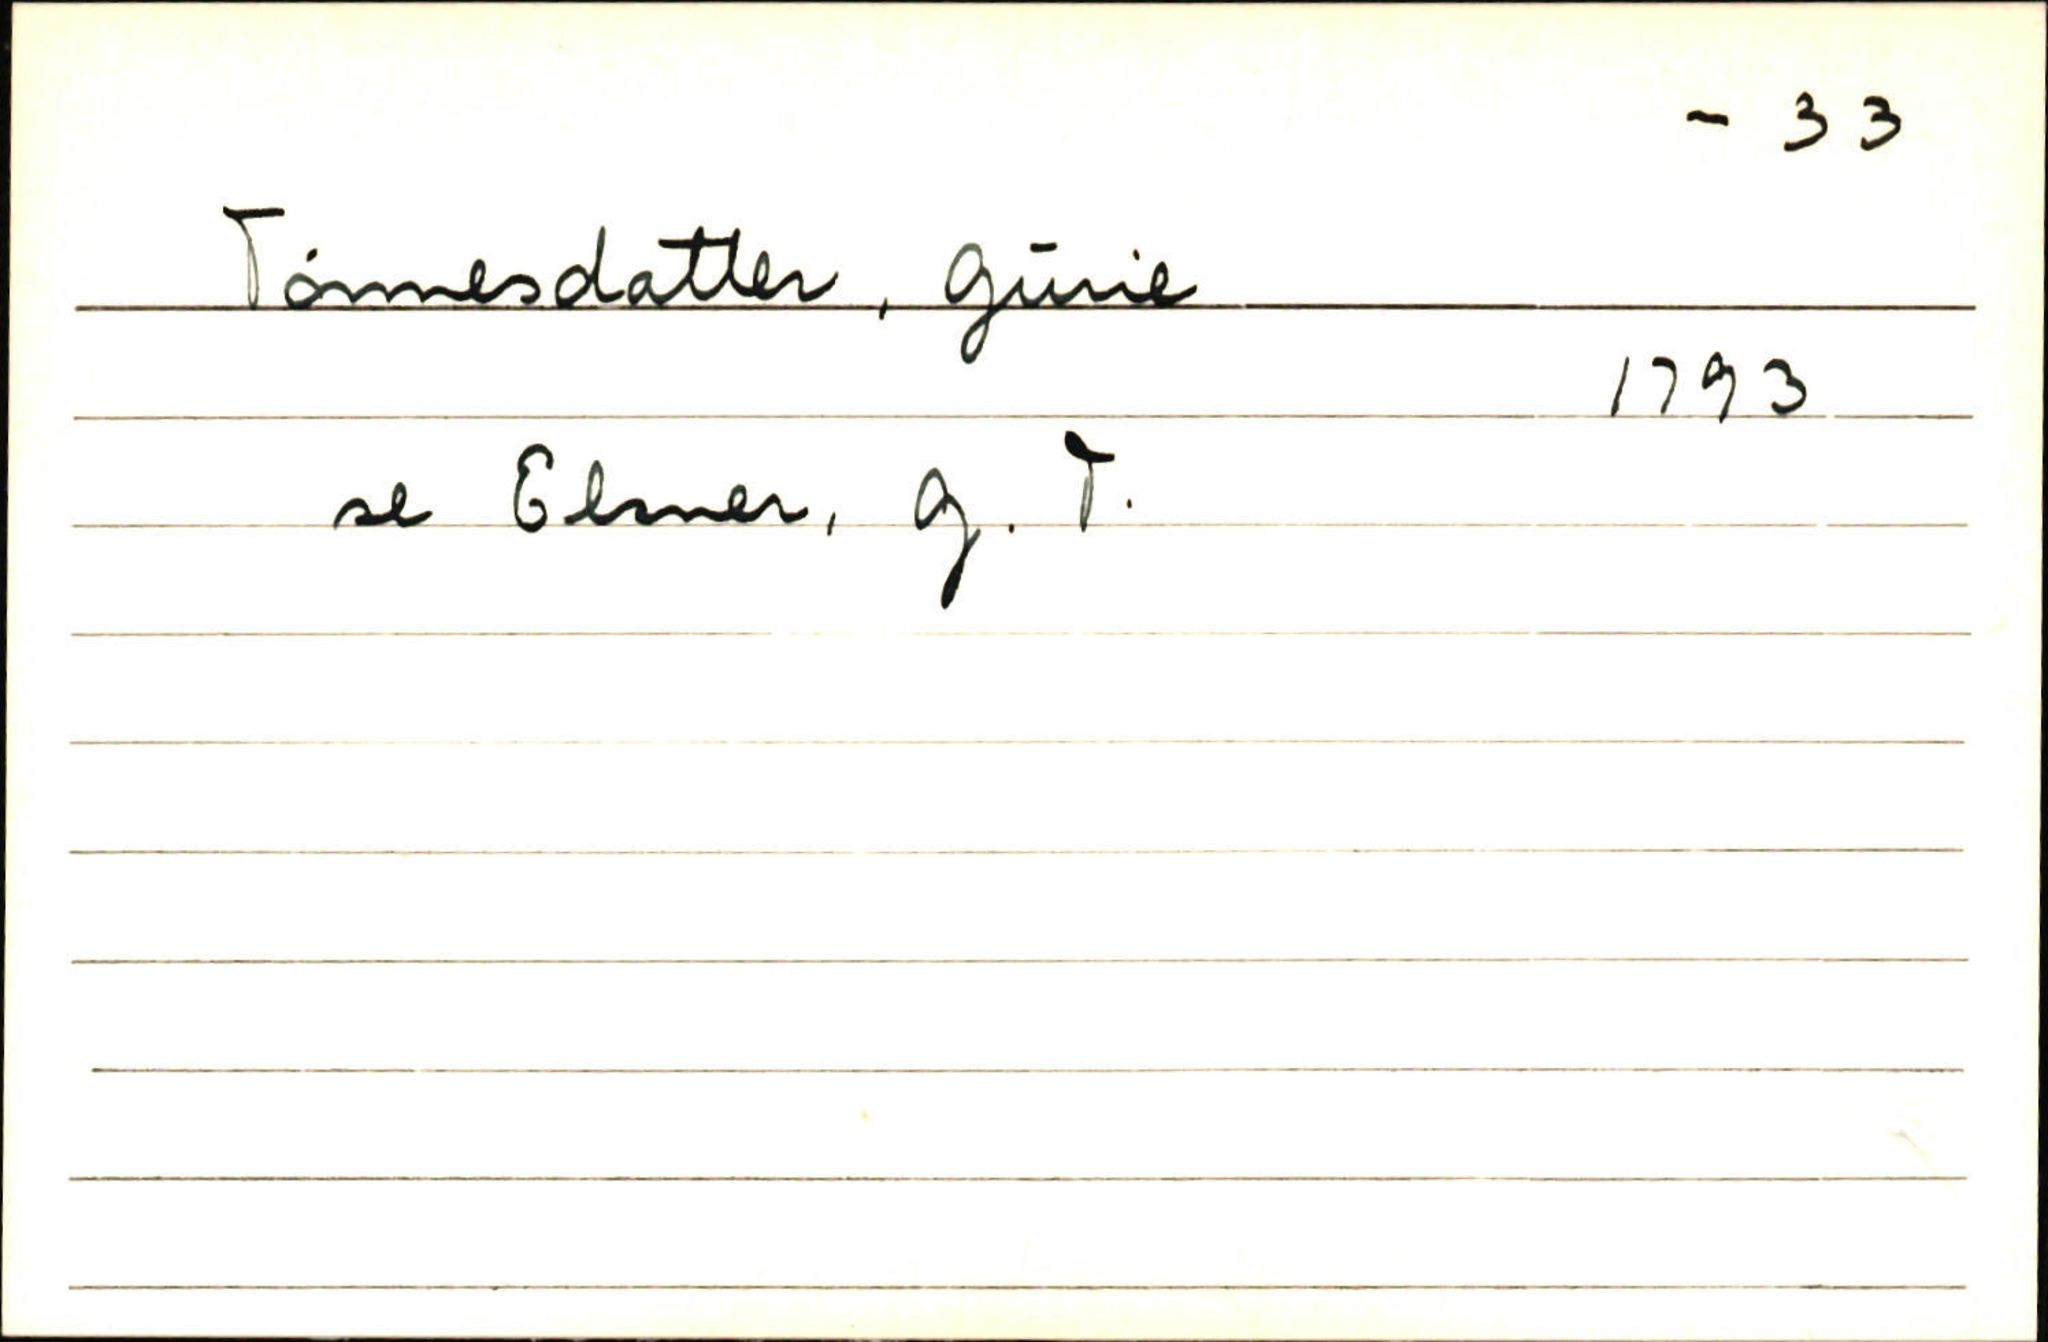 - 33
Tónnesdatter, Gūrie
1793
se Elsner, G. T.